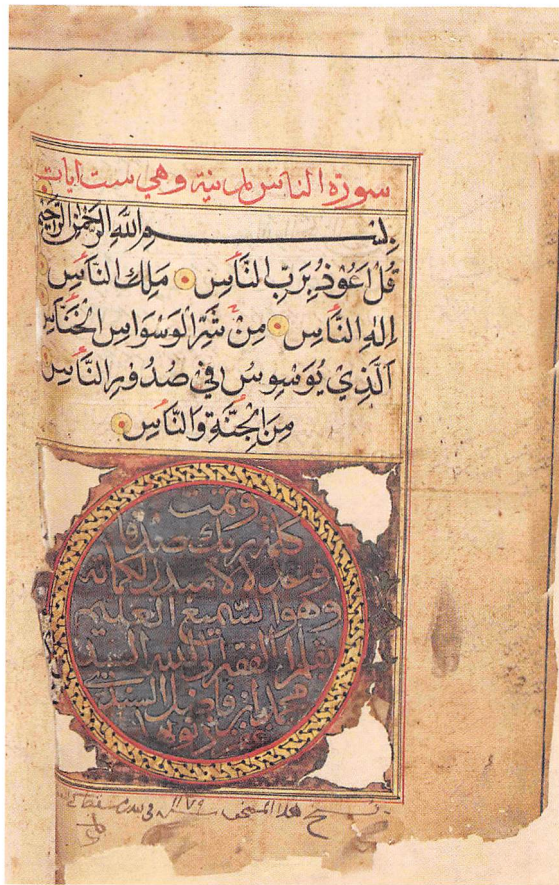 سورة الناس مدنية وهي ست ايات
بِسْمِ اللهِ الرَّحْمٰنِ الرَّحِيْمِ
قُلْ اَعُوْذُ بِرَبِّ النَّاسِ مَلِكِ النَّاسِ
اِلٰهِ النَّاسِ مِنْ شَرِّ الْوَسْوَاسِ الْخَنَّاسِ
اَلَّذِيْ يُوَسْوِسُ فِيْ صُدُوْرِ النَّاسِ
مِنَ الْجِنَّةِ وَالنَّاسِ
وتمت
كلمة ربك صدقا
وعدلا لا مبدل لكلماته
وهو السميع العليم
بقلم الفقير الى الله السيد
محمد بن فاضل السيد
نسخ هذا المصحف سنة ١١٧٩ في